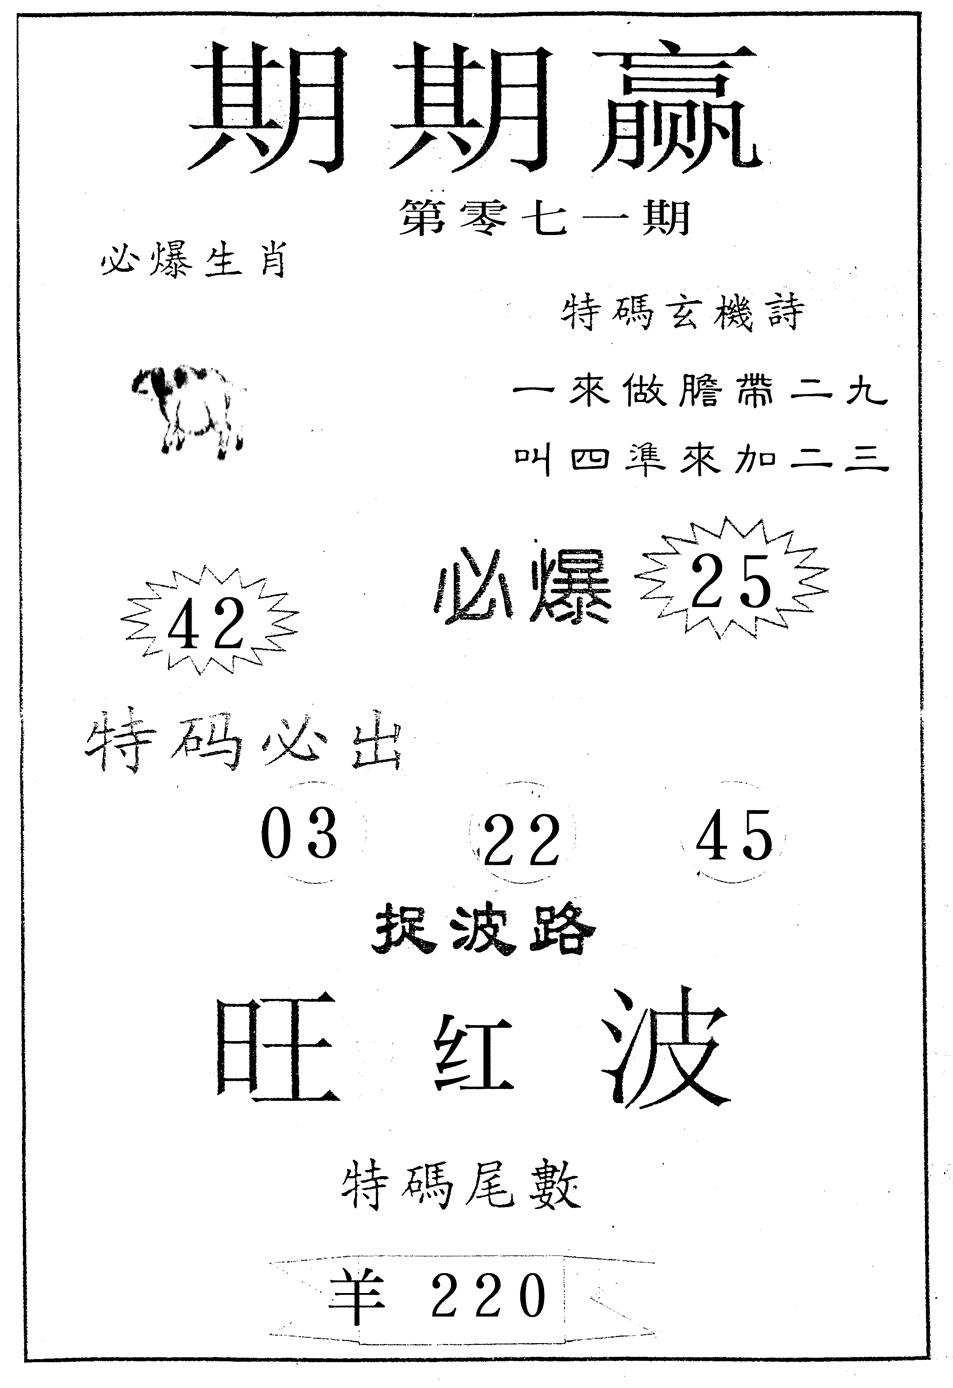 期期赢
第零七一期
必爆生肖
特碼玄機詩
一來做膽帶二九
叫四準來加二三
必爆 25
42
特码必出
03 22 45
捉波路
旺红波
特碼尾數
羊 220